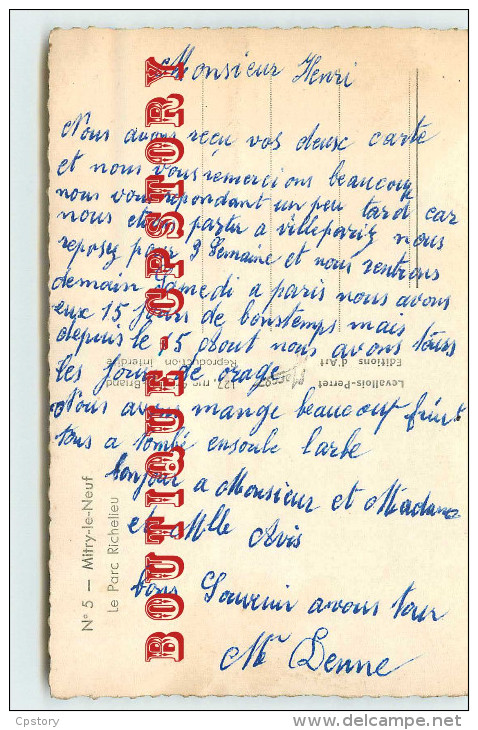 Monsieur Henri
Nous avons reçu vos deux carte
et nous vous remercions beaucoup
nous vous repondant un peu tard car
nous etion partir a villepariz nous
reposez pour 3 Semaine et nous rentrons
demain Samedi a paris nous avons
eux 15 jours de bonstemps mais
depuis le 15 aout nous avons tous
les jour de orage
Nous avons mange beaucoup
tous a tombé
bonjour a Monsieur et Madame
et Mlle Avis
bons Souvenir avous tous
Mr Denne
N° 5 — Mitry-le-Neuf
Le Parc Richelieu
BOUTIQUE - CPSTORY
Levallois-Perret
127, rue Briand
Editions d'Art
Reproduction Interdite
Cpstory
delcampe.net